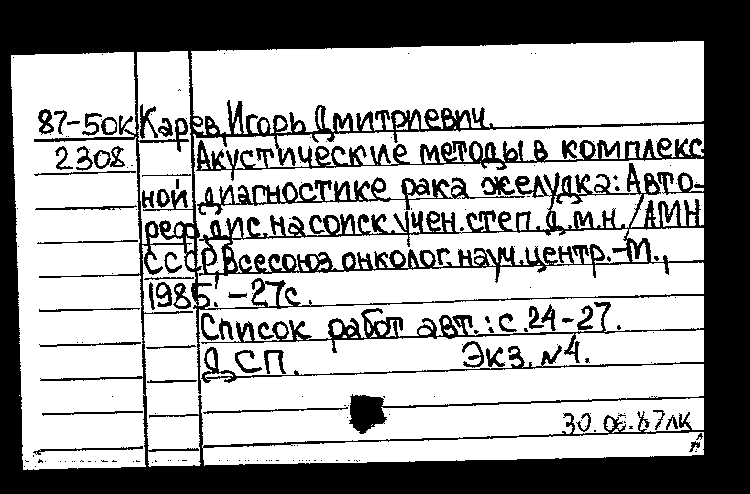 87-50К Карев, Игорь Дмитриевич.
2308 Акустические методы в комплекс-
ной диагностике рака желудка: Авто-
реф. дис. на соиск. учен. степ. д.м.н. / АМН
СССР, Всесоюз. онколог. науч. центр.-М.,
1985. -27с.
Список работ авт.: с. 24-27.
ДСП. Экз. №4.
30.06.87лк